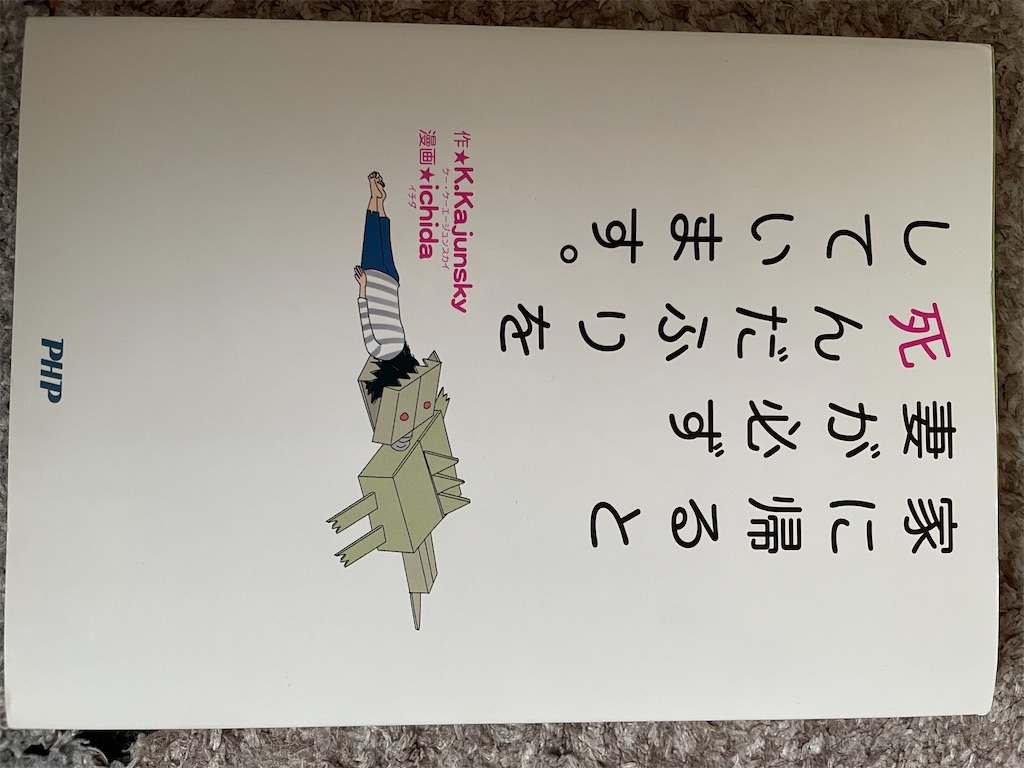 家に帰ると
妻が必ず
死んだふりを
しています。
作★K.Kajunsky
ケー・ケーエージュンスカイ
漫画★ichida
イチダ
PHP